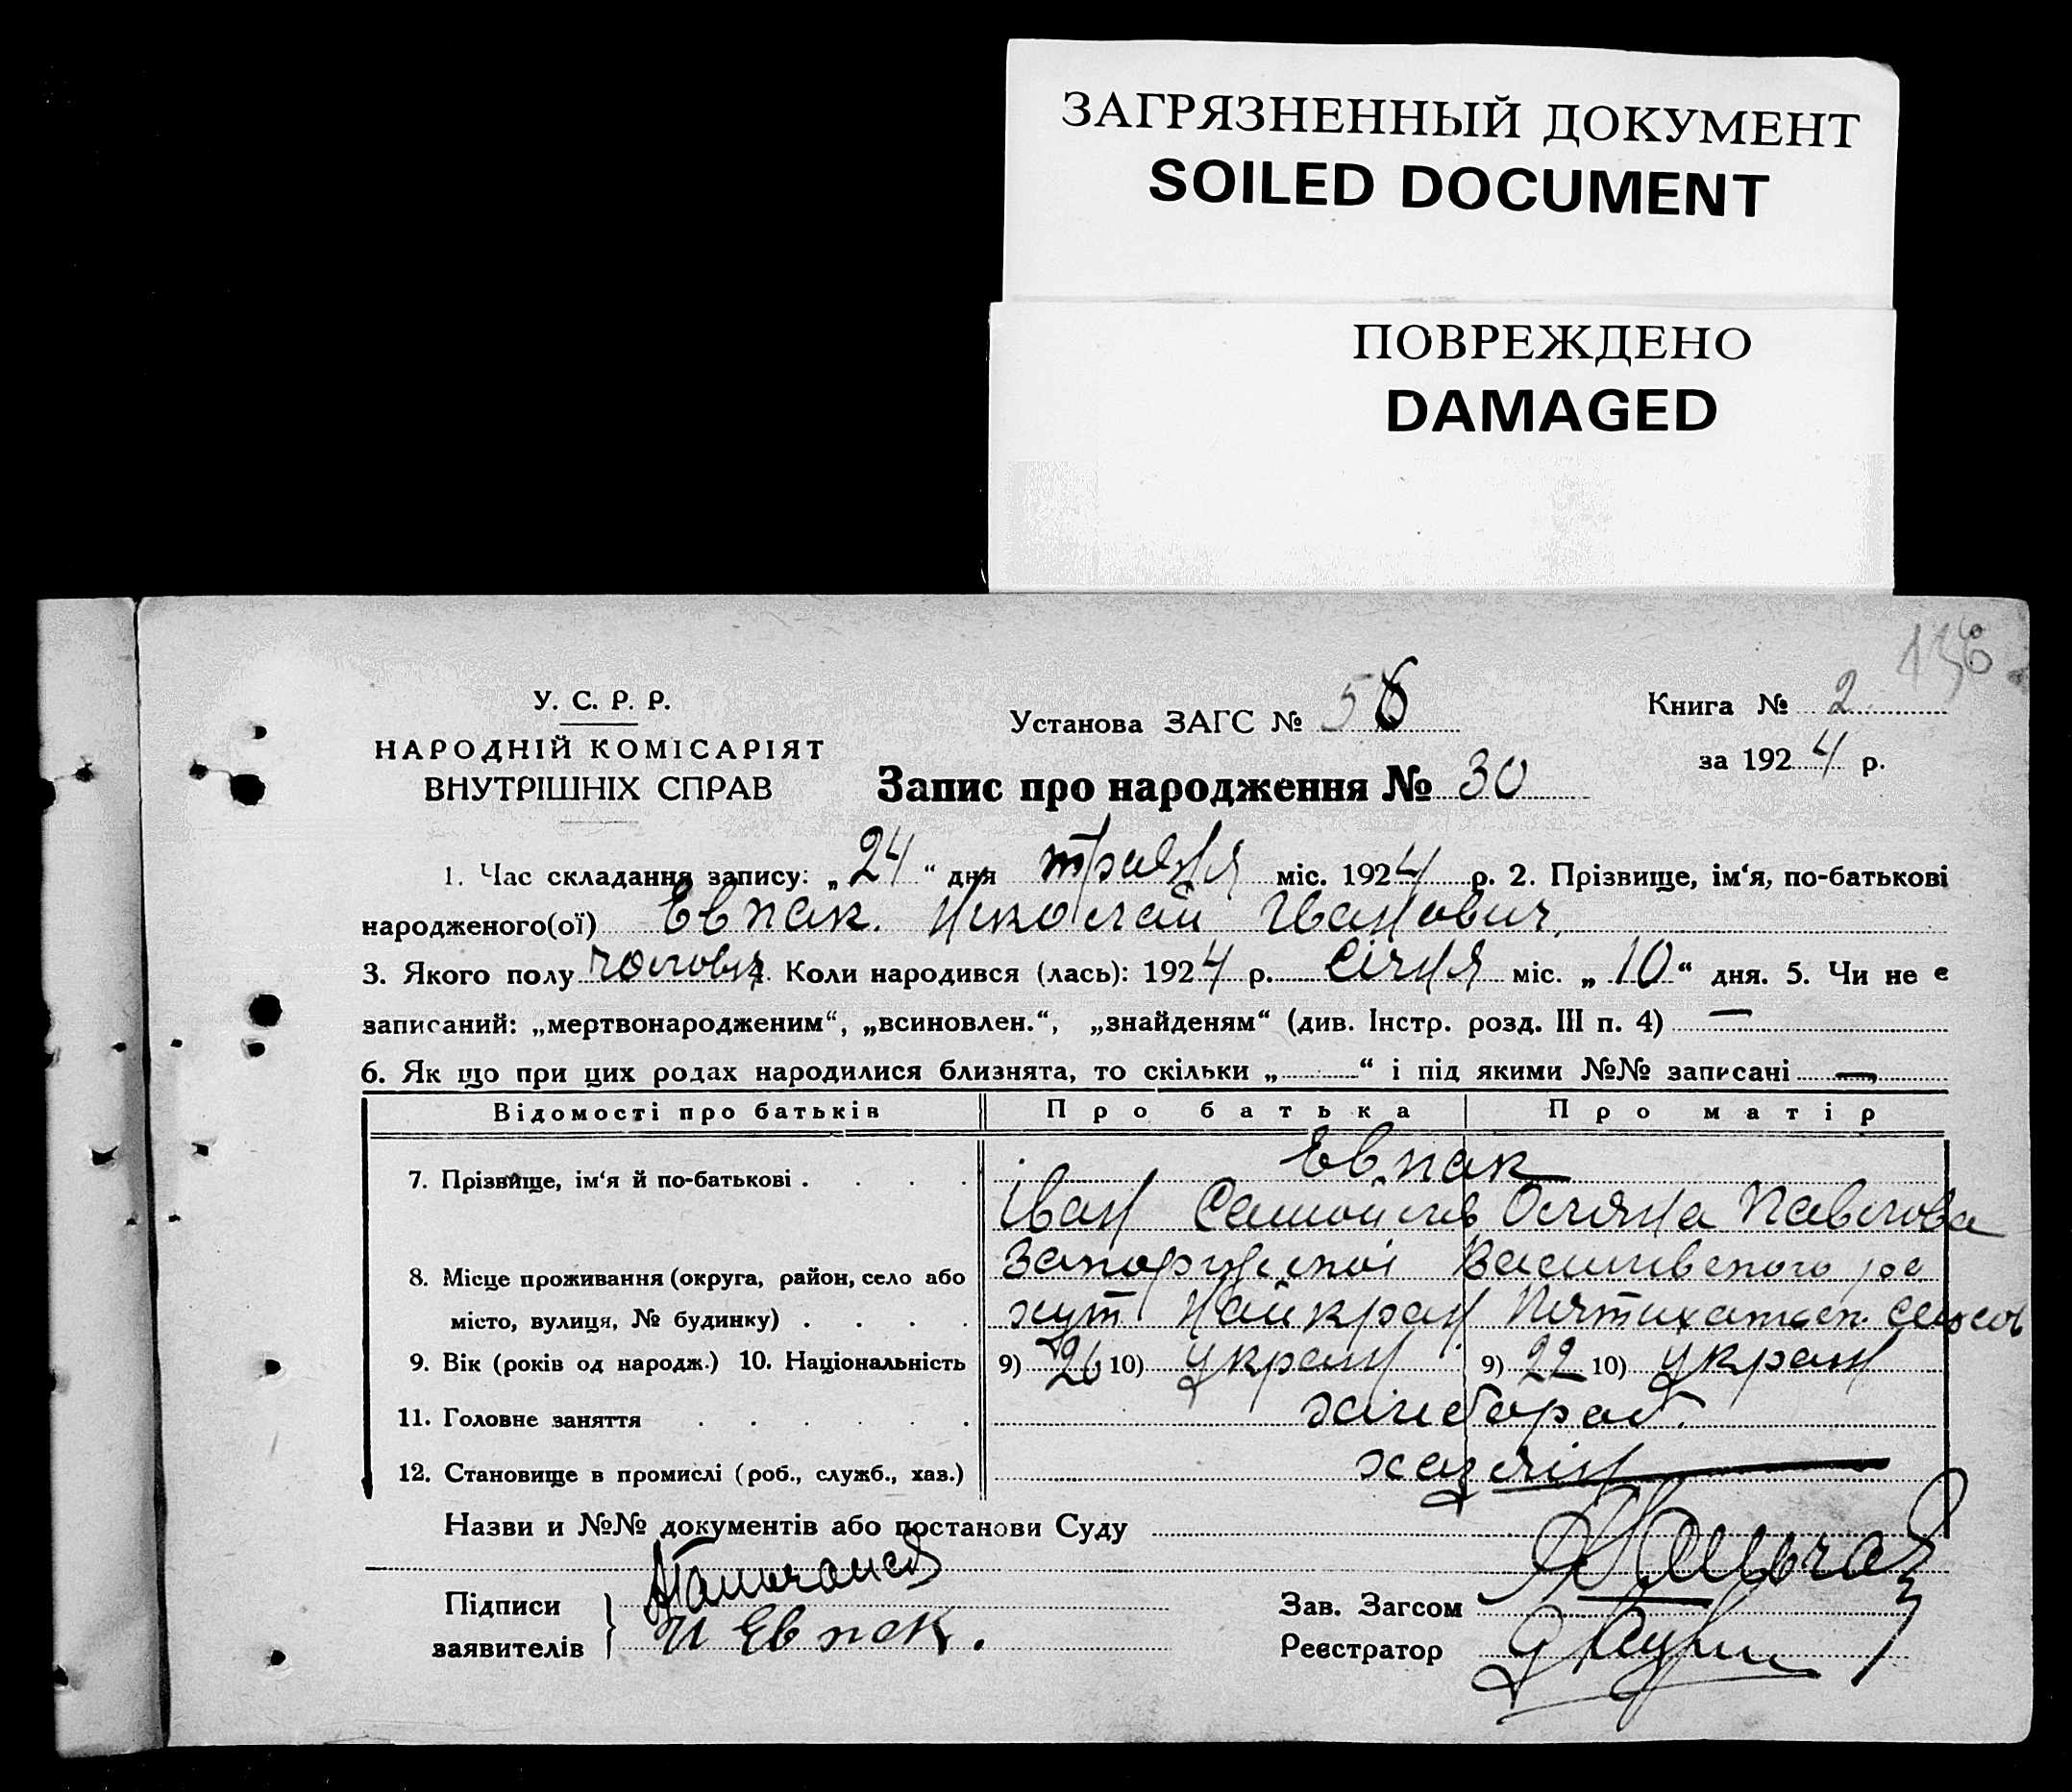 ЗАГРЯЗНЕННЫЙ ДОКУМЕНТ
SOILED DOCUMENT
ПОВРЕЖДЕНО
DAMAGED
136
У. С. Р. Р.
НАРОДНІЙ КОМІСАРІЯТ
ВНУТРІШНІХ СПРАВ
Установа ЗАГС № 56
Книга № 2
за 1924 р.
Запис про народження № 30
1. Час складання запису: „24“ дня травня міс. 1924 р. 2. Прізвище, ім‘я, по-батькові
народженого(ої) Евпак. Николай Іванович.
3. Якого полу чоловіч 4. Коли народився (лась): 1924 р. Січня міс. „10“ дня. 5. Чи не є
записаний: „мертвонародженим“, „всиновлен.“, „знайденям“ (див. Інстр. розд. III п. 4) —
6. Як що при цих родах народилися близнята, то скільки „ “ і під якими №№ записані —
Відомості про батьків Про батька Про матір
7. Прізвище, ім‘я й по-батькові . . . . Евпак
Іван Самойлов Оляна Павлова
8. Місце проживання (округа, район, село або Запоружської Василівського ра
місто, вулиця, № будинку) . . . . хут Найкран Пятихатськ.
9. Вік (років од народж.) 10. Національність 9) 26 10) Украін 9) 22 10) Украін
11. Головне заняття . . . . . . хлібороб.
12. Становище в промислі (роб., служб., хаз.) хазяін
Назви и №№ документів або постанови Суду
Підписи
заявителів И Евпак.
Зав. Загсом
Реєстратор